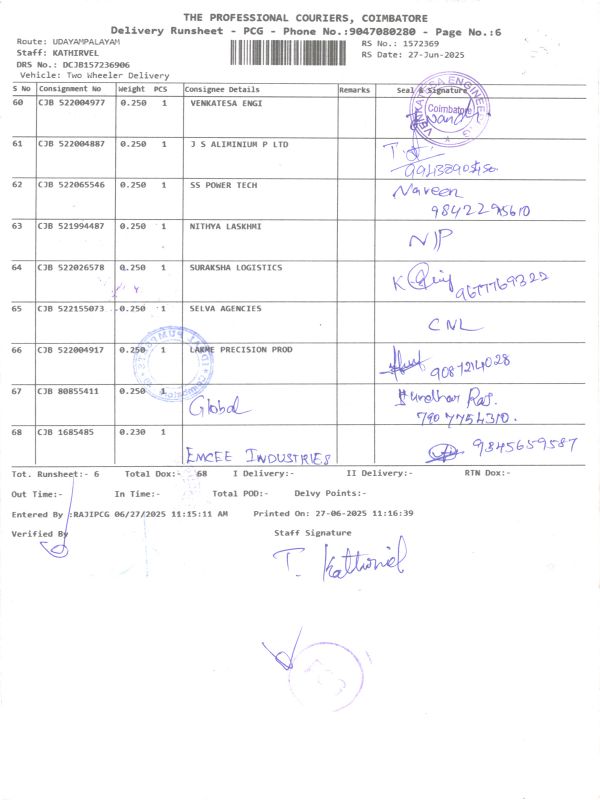 THE PROFESSIONAL COURIERS, COIMBATORE
Delivery Runsheet - PCG - Phone No.:9047080280 - Page No.:6
Route: UDAYAMPALAYAM RS No.: 1572369
Staff: KATHIRVEL RS Date: 27-Jun-2025
DRS No.: DCJB157236906
Vehicle: Two Wheeler Delivery
S No Consignment No Weight PCS Consignee Details Remarks Seal & Signature
60 CJB 522004977 0.250 1 VENKATESA ENGI
Coimbatore
61 CJB 522004887 0.250 1 J S ALIMINIUM P LTD
62 CJB 522065546 0.250 1 SS POWER TECH Naveen
9842295610
63 CJB 521994487 0.250 1 NITHYA LASKHMI N/P
64 CJB 522026578 0.250 1 SURAKSHA LOGISTICS K
9677769322
65 CJB 522155073 0.250 1 SELVA AGENCIES CNL
66 CJB 522004917 0.250 1 LAKME PRECISION PROD
9087214028
67 CJB 80855411 0.250 1 Global
7907754310.
68 CJB 1685485 0.230 1 EMCEE INDUSTRIES 9845659587
Tot. Runsheet:- 6 Total Dox:- 68 I Delivery:- II Delivery:- RTN Dox:-
Out Time:- In Time:- Total POD:- Delvy Points:-
Entered By :RAJIPCG 06/27/2025 11:15:11 AM Printed On: 27-06-2025 11:16:39
Verified By Staff Signature